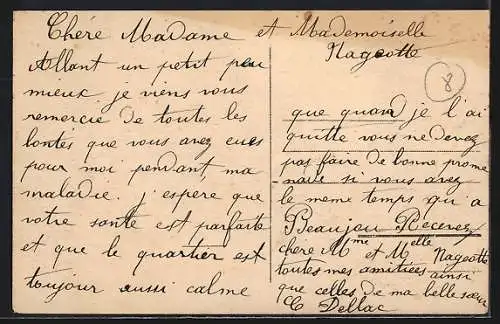 Chère Madame et Mademoiselle
Nageotte
Allant un petit peu
mieux je viens vous
remercié de toutes les
bontés que vous avez eues
pour moi pendant ma
maladie. j'espère que
votre santé est parfaite
et que le quartier est
toujour aussi calme
8
que quand je l'ai
quitté vous ne devez
pas faire de bonne prome
nade si vous avez
le même temps qu'a
Beaujeu Recevez
chère Mme et Melle Nageotte
toutes mes amitiées ainsi
que celles de ma belle sœur
C Dellac